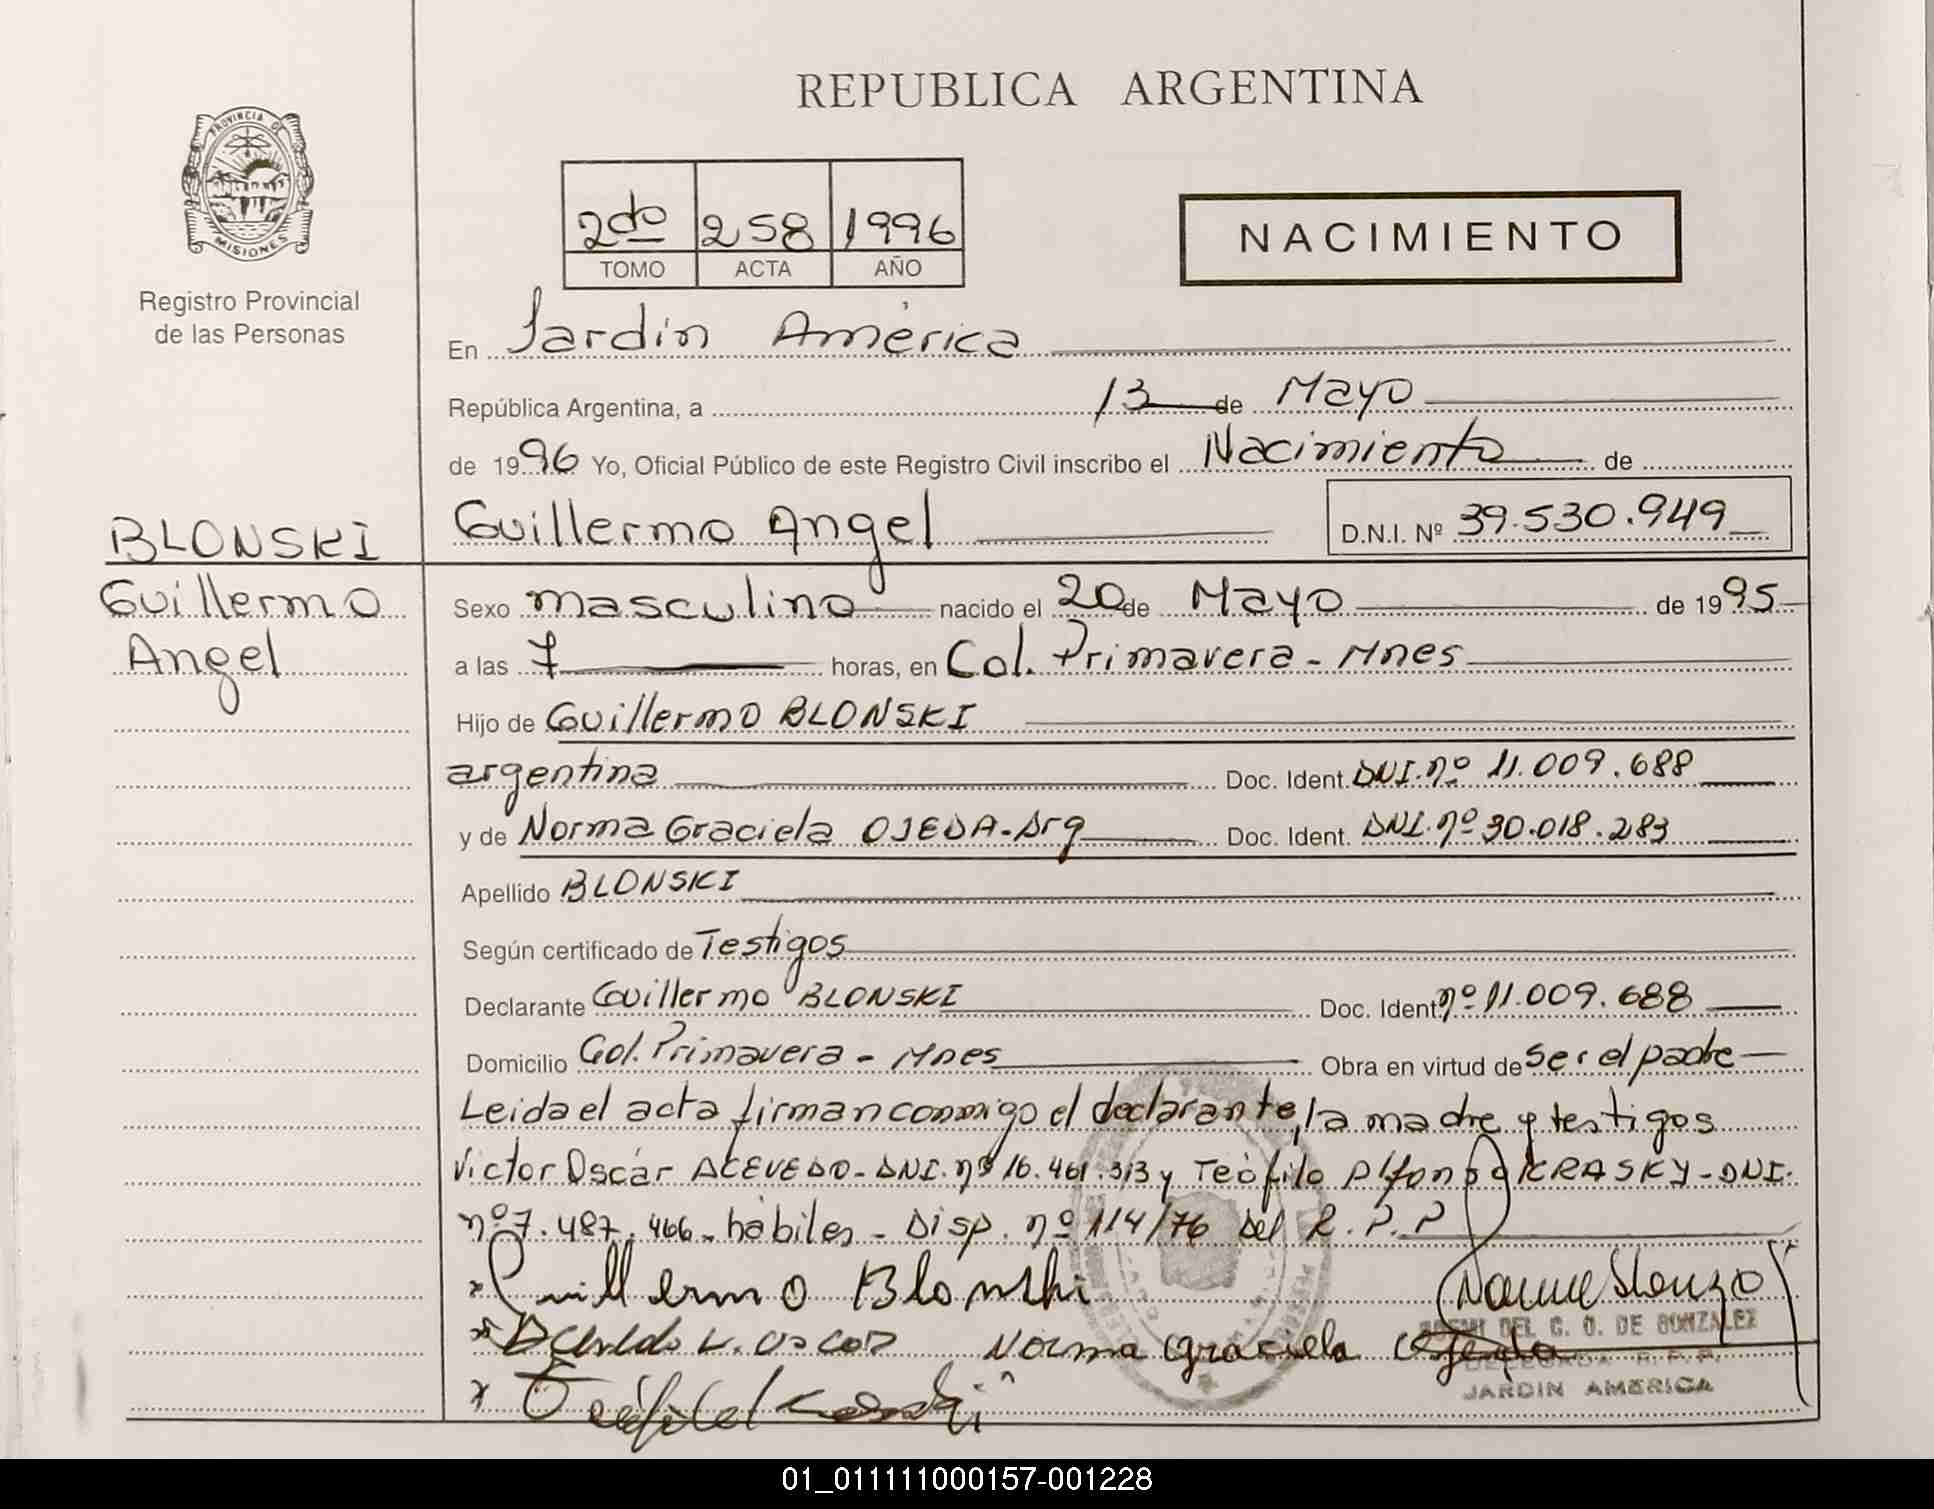 REPUBLICA ARGENTINA
PROVINCIA DE
MISIONES
Registro Provincial
de las Personas
2do 258 1996
TOMO ACTA AÑO
NACIMIENTO
En Jardín América
República Argentina, a 13 de Mayo
de 1996 Yo, Oficial Público de este Registro Civil inscribo el Nacimiento de
Guillermo Angel D.N.I. Nº 39.530.949
BLONSKI
Guillermo
Angel
Sexo masculino nacido el 20 de Mayo de 1995
a las 7 horas, en Col. Primavera - Mnes
Hijo de Guillermo BLONSKI
argentina Doc. Ident. DNI. nº 11.009.688
y de Norma Graciela OJEDA - Arg Doc. Ident. DNI. nº 30.018.283
Apellido BLONSKI
Según certificado de Testigos
Declarante Guillermo BLONSKI Doc. Ident. nº 11.009.688
Domicilio Col. Primavera - Mnes Obra en virtud de Ser el padre
Leida el acta firman conmigo el declarante, la madre y testigos
Victor Oscar ACEVEDO - DNI. nº 16.461.313 y Teófilo Alfonso KRASKY - DNI.
nº 7.487.466 - hábiles - Disp. nº 114/76 del R.P.P
x Guillermo Blonski
DEL C. O. DE GONZALEZ
Norma Graciela Ojeda
DELEGADA R.P.P.
JARDIN AMERICA
01_011111000157-001228